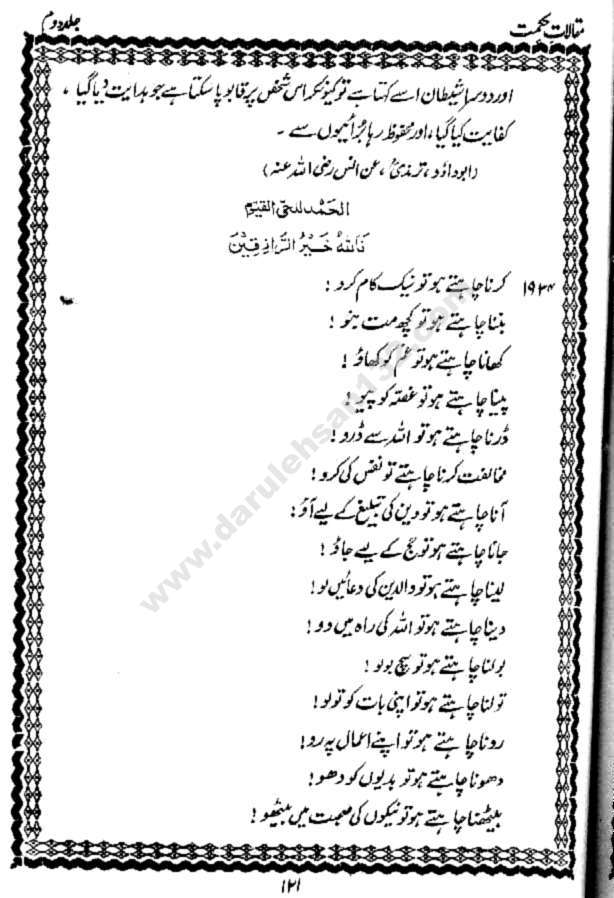 مقالات حکمت
جلد دوم
اور دوسرا شیطان اسے کہتا ہے تو کیونکر اس شخص پر قابو پا سکتا ہے جو ہدایت دیا گیا ،
کفایت کیا گیا، اور محفوظ رہا برائیوں سے ۔
(ابوداؤد، ترمذیؒ، عن انس رضی اللہ عنہ)
الحمد للحی القیوم
فَاللهُ خَيْرُ الرَّازِقِيْنَ
۱۹۳۴ کرنا چاہتے ہو تو نیک کام کرو :
بننا چاہتے ہو تو کچھ مت بنو !
کھانا چاہتے ہو تو غم کو کھاؤ !
پینا چاہتے ہو تو غصّہ کو پیو !
ڈرنا چاہتے ہو تو اللہ سے ڈرو !
مخالفت کرنا چاہتے تو نفس کی کرو !
آنا چاہتے ہو تو دین کی تبلیغ کے لیے آؤ :
جانا چاہتے ہو تو حج کے لیے جاؤ :
لینا چاہتے ہو تو والدین کی دعائیں لو !
دینا چاہتے ہو تو اللہ کی راہ میں دو !
بولنا چاہتے ہو تو سچ بولو !
تولنا چاہتے ہو تو اپنی بات کو تولو !
رونا چاہتے ہو تو اپنے اعمال پہ رو !
دھونا چاہتے ہو تو بدیوں کو دھو !
بیٹھنا چاہتے ہو تو نیکوں کی صحبت میں بیٹھو !
۱۲۱
www.darulehsan138.com